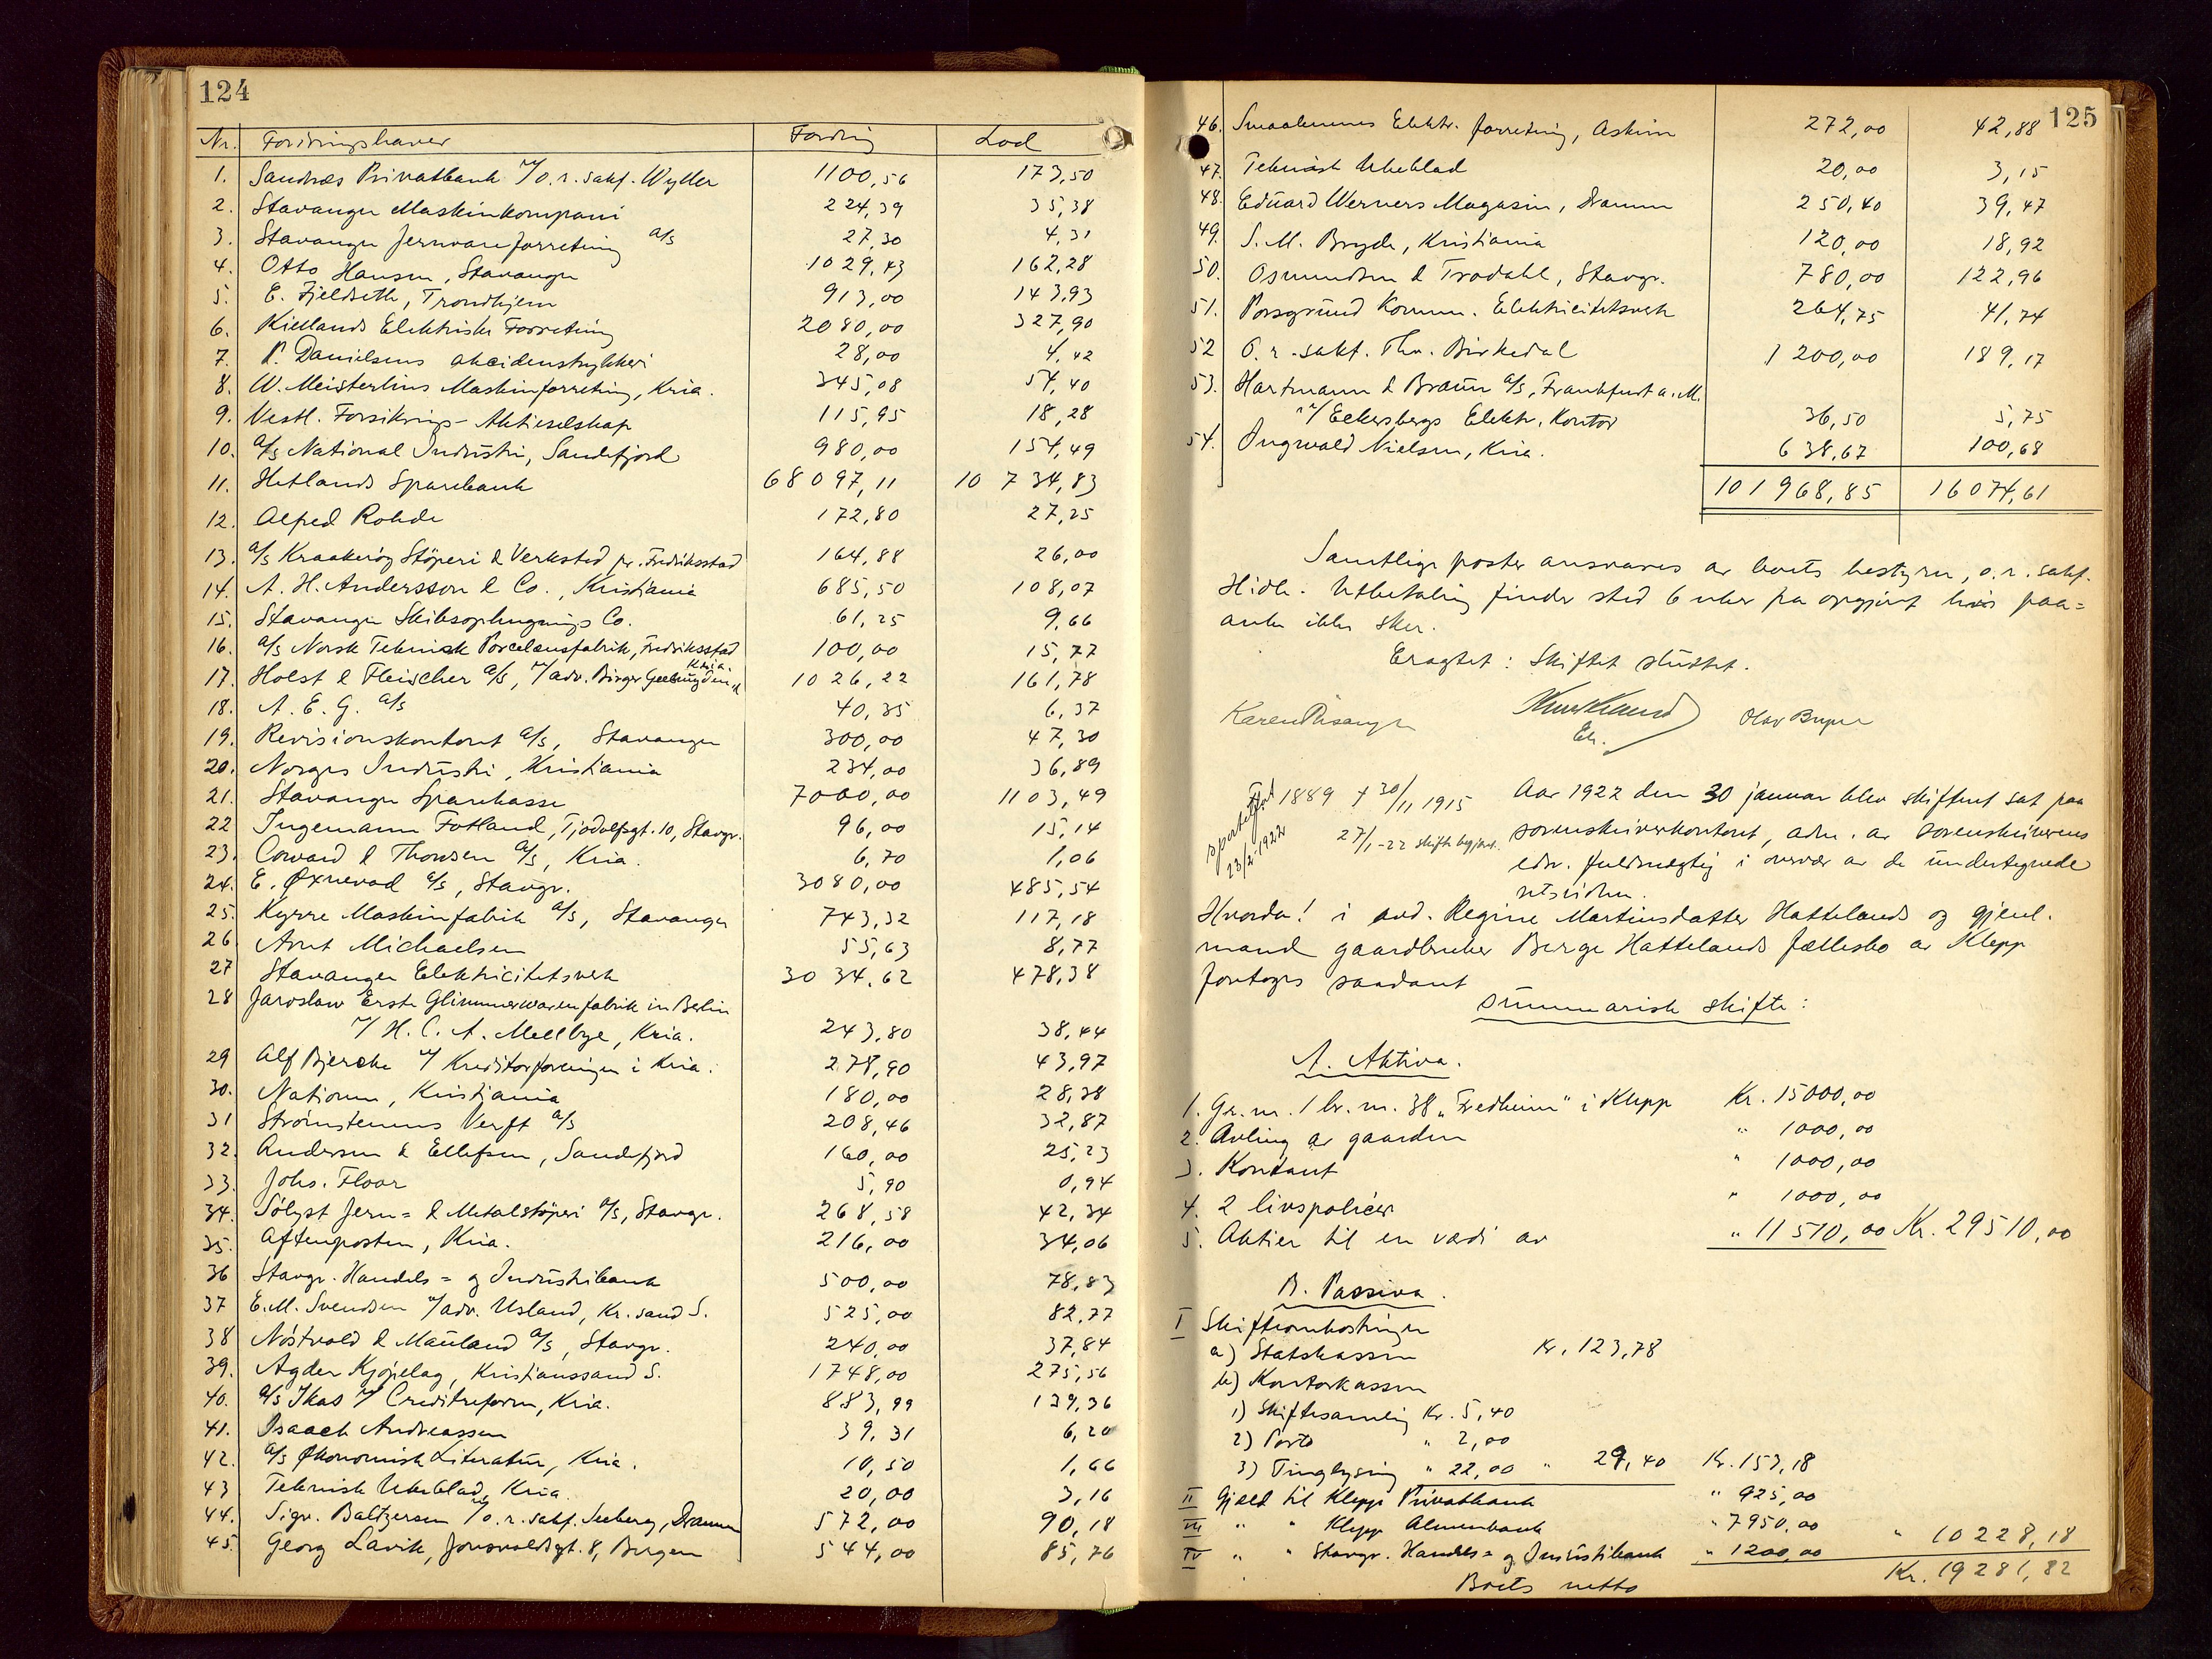 124
Nr. Fordringshaver Fordring Lod
1. Sandnes Privatbank v/ o.r.sakf. Wyller 1100,56 173,50
2. Stavanger Maskinkompani 224,39 35,38
3. Stavanger Jernvareforretning a/s 27,30 4,31
4. Otto Hansen, Stavanger 1029,43 162,28
5. E. Fjeldseth, Trondhjem 913,00 143,93
6. Kiellands Elektriske Forretning 2080,00 327,90
7. P. Danielsens akcidenstrykkeri 28,00 4,42
8. W. Meisterlins Maskinforretning, Kria. 345,08 54,40
9. Vestl. Forsikrings-Aktieselskap 115,95 18,28
10. a/s National Industri, Sandefjord 980,00 154,49
11. Hetlands Sparebank 68097,11 10734,83
12. Alfred Rohde 172,80 27,25
13. a/s Kraakerøy Støperi & Verksted pr. Fredriksstad 164,88 26,00
14. A. H. Andersson & Co., Kristiania 685,50 108,07
15. Stavanger Skibsophugnings Co. 61,25 9,66
16. a/s Norsk Teknisk Porcelænsfabrik, Fredriksstad 100,00 15,77
17. Holst & Fleischer a/s, v/ adv. Birger Kria. 1026,22 161,78
18. A. E. G. a/s 40,35 6,37
19. Revisionskontoret a/s, Stavanger 300,00 47,30
20. Norges Industri, Kristiania 234,00 36,89
21. Stavanger Sparekasse 7000,00 1103,49
22 Ingemann Fotland, Tjodolfsgt. 10, Stavgr. 96,00 15,14
23. Coward & Thowsen a/s, Kria. 6,70 1,06
24. E. Øxnevad a/s, Stavgr. 3080,00 485,54
25. Kyrre Maskinfabrik a/s, Stavanger 743,32 117,18
26. Arnt Michaelsen 55,63 8,77
27 Stavanger Elektricitetsverk 3034,62 478,38
28 Jaroslaw Erste Glimmerwarenfabrik in Berlin
v/ H. C. A. Mellbye, Kria. 243,80 38,44
29 Alf Bjercke v/ Kreditorforeningen i Kria. 278,90 43,97
30. Nationen, Kristiania 180,00 28,38
31 Strømstemmes Verft a/s 208,46 32,87
32. Andersen & Ellefsen, Sandefjord 160,00 25,23
33. Johs. Floor 5,90 0,94
34. Sølyst Jern= & Metalstøperi a/s, Stavgr. 268,58 42,34
35. Aftenposten, Kria. 216,00 34,06
36 Stavgr. Handels= og Industribank 500,00 78,83
37 E.M. Svendsen v/ adv. Usland, Kr.sand S. 525,00 82,77
38 Nøstvold & Mauland a/s, Stavgr. 240,00 37,84
39. Agder Kjøpelag, Kristianssand S. 1748,00 275,56
40. a/s Ikas v/ Creditreform, Kria. 883,99 139,36
41. Isaach Andreassen 39,31 6,20
42. a/s Økonomisk Literatur, Kria. 10,50 1,66
43 Teknisk Ukeblad, Kria 20,00 3,16
44. Sigv. Baltzersen v/ o.r.sakf. Seeberg, Drammen 572,00 90,18
45. Georg Lavik, Jonsvoldsgt. 8, Bergen 544,00 85,76
125
46. Smaalenenes Elektr. forretning, Askim 272,00 42,88
47. Teknisk Ukeblad 20,00 3,15
48. Eduard Werners Magasin, Dramm 250,40 39,47
49. S. M. Bryde, Kristiania 120,00 18,92
50. Osmundsen & Trodahl, Stavgr. 780,00 122,96
51. Porsgrund Komm. Elektricitetsverk 264,75 41,74
52 O.r.sakf. Thv. Birkedal 1200,00 189,17
53. Hartmann & Braun a/s, Frankfurt a. M.
v/ Eckersbergs Elektr. Kontor 36,50 5,75
54. Ingwald Nielsen, Kria. 638,67 100,68
101968,85 16074,61
Samtlige poster ansvares av boets bestyrer, o.r.sakf.
Hidle. Utbetaling finder sted 6 uker fra opgjøret hvis paa=
anke ikke sker.
Eragtet: Skiftet sluttet.
Olav Bryne
1889 † 30/11 1915
27/1-22 skifte begjært.
23/2-1922
Aar 1922 den 30 januar blev skifteret sat paa
sorenskriverkontoret, adm. av sorenskriverens
edsv. fuldmægtig i overvær av de undertegnede
retsvidner.
Hvorda! i avd. Regine Martinsdatter Hattelands og gjenl.
mand gaardbruker Berge Hattelands fællesbo av Klepp
foretoges saadant
summarisk skifte:
A. Aktiva.
1. Gr.nr. 1 br.nr. 38 „Fredheim" i Klepp Kr. 15000,00
2. Avling av gaarden " 1000,00
3. Kontant " 1000,00
4. 2 livspolicer " 1000,00
5. Aktier til en værdi av " 11510,00 Kr. 29510,00
B. Passiva.
I Skifteomkostninger
a) Statskassen Kr. 123,78
b) Kontorkassen
1) Skiftesamling Kr. 5,40
2) Porto " 2,00
3) Tinglysning " 22,00 " 29,40 Kr. 153,18
II Gjæld til Klepp Privatbank " 925,00
III " " Klepp Almenbank " 7950,00
IV " " Stavgr. Handels= og Industribank " 1200,00 " 10228,18
Boets netto Kr. 19281,82